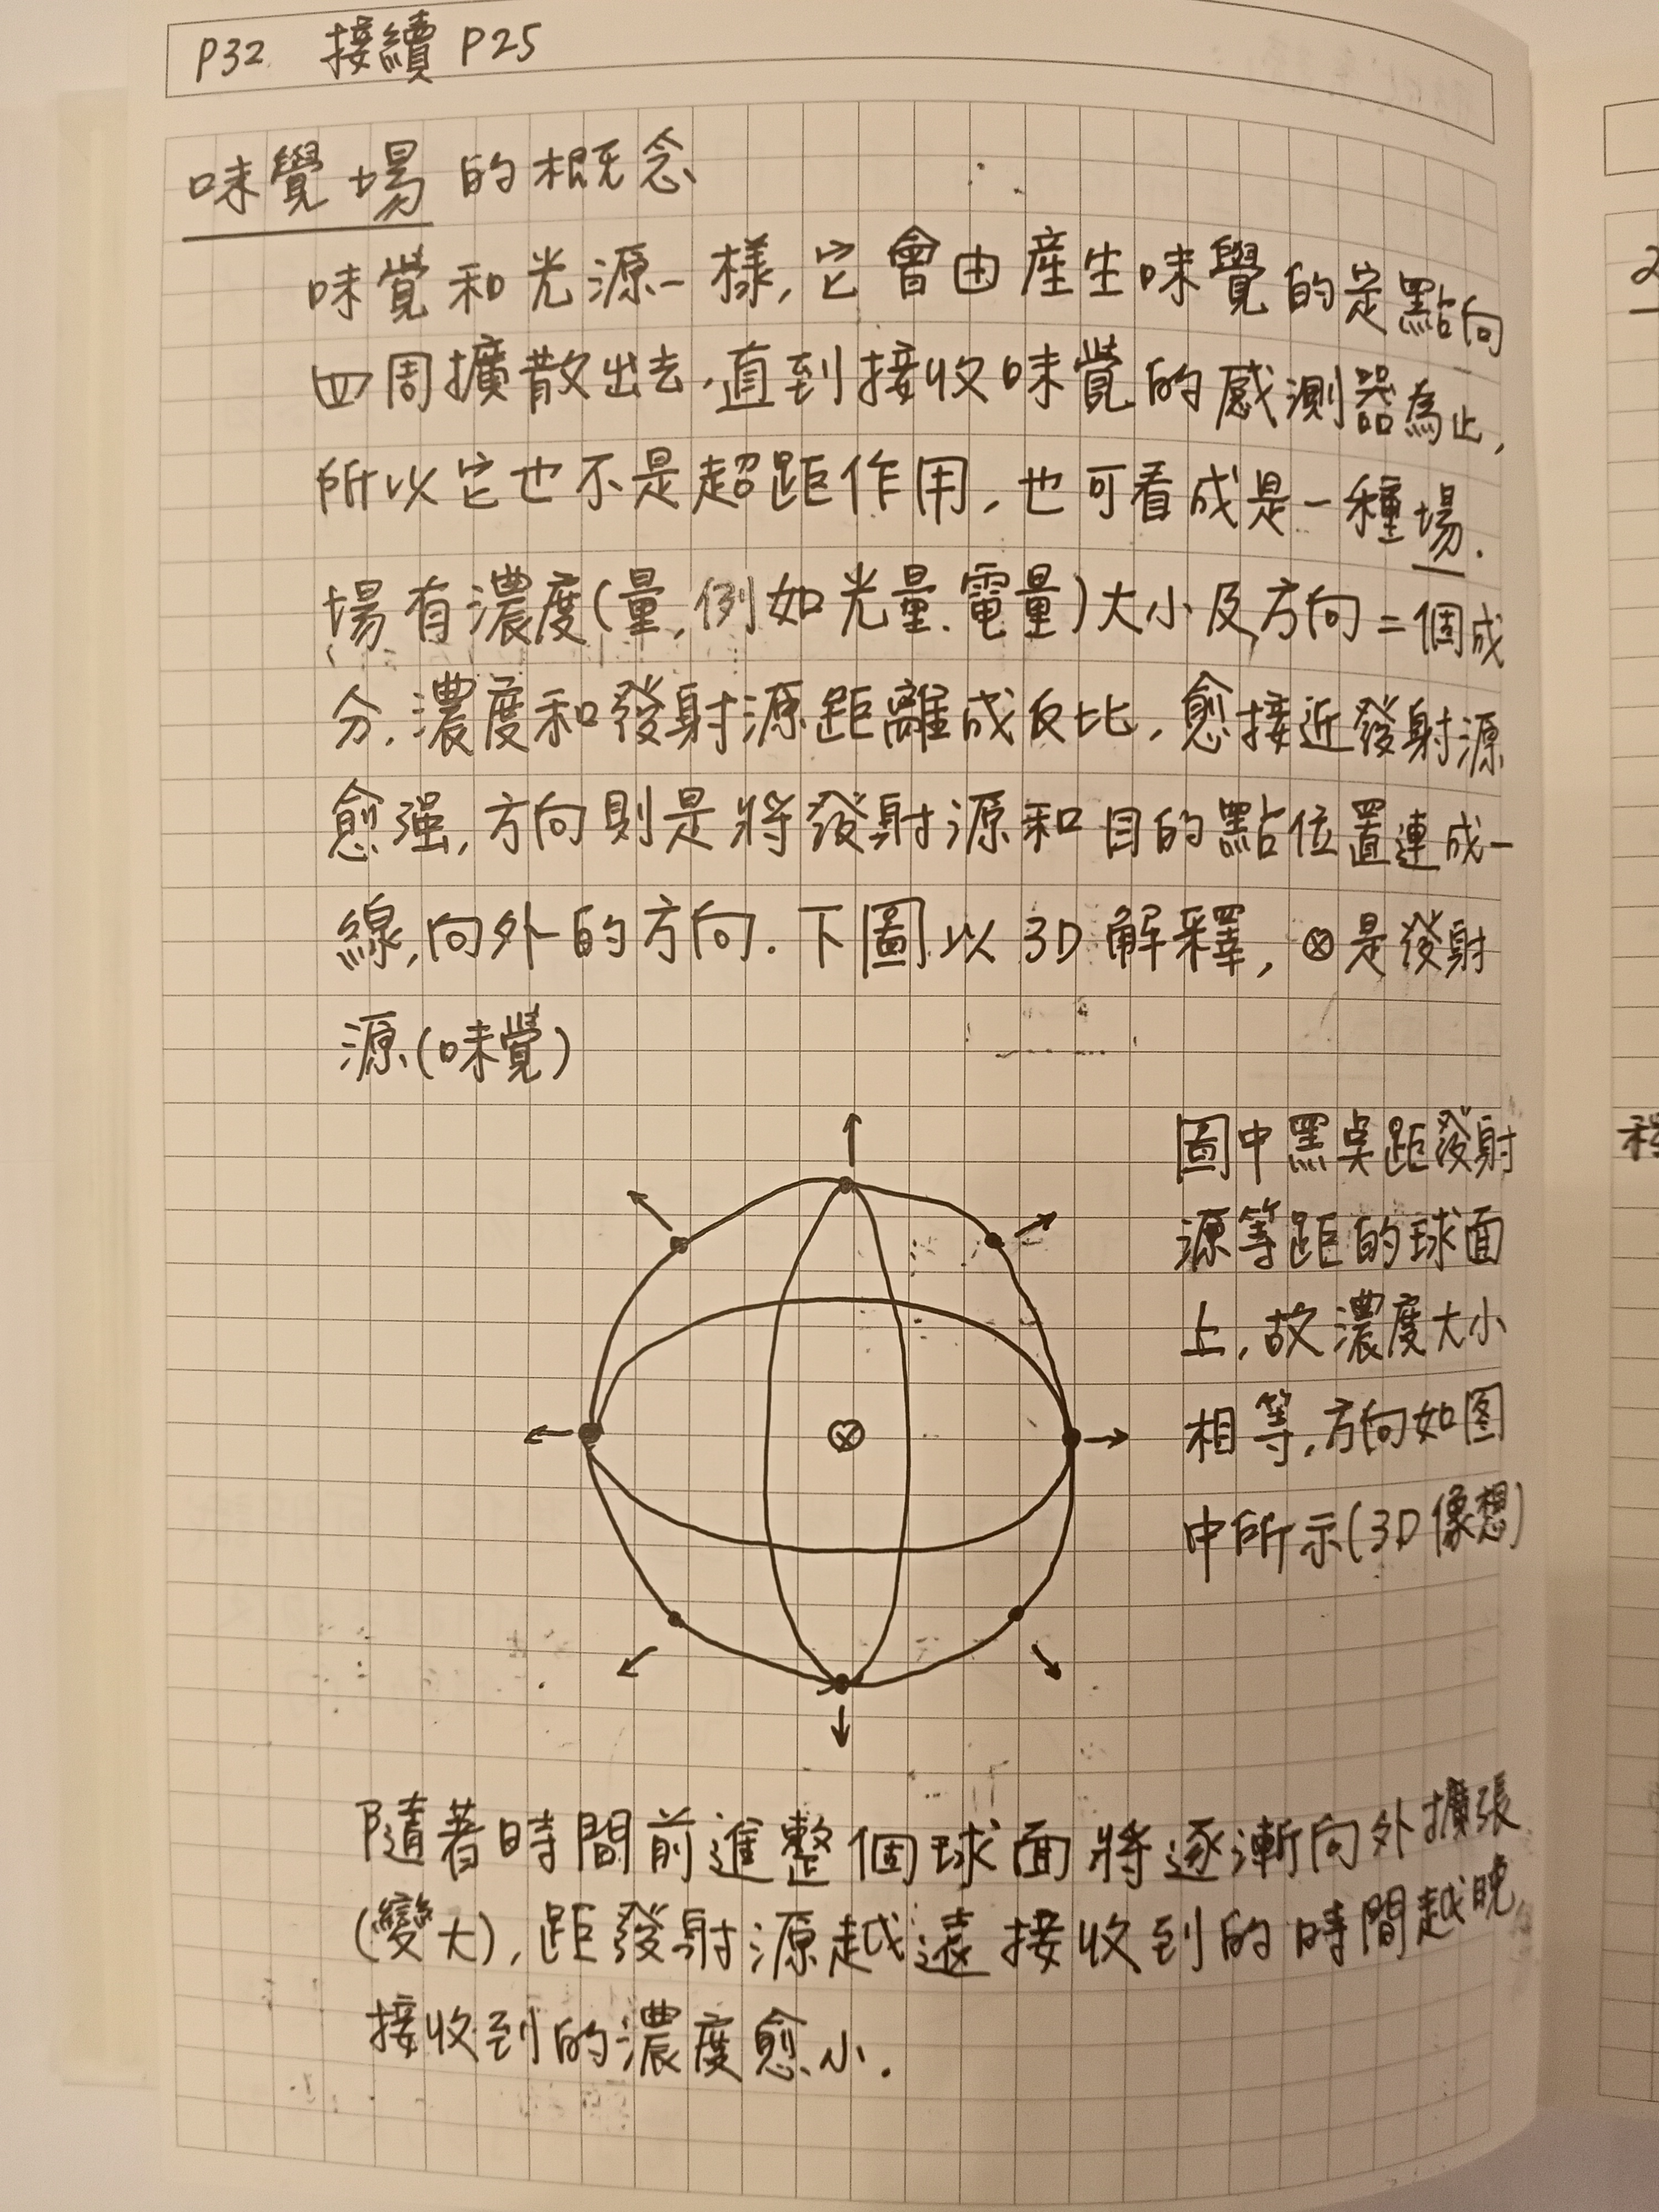 P32 接續 P25
味覺場的概念
味覺和光源一樣,它會由産生味覺的定點向
四周擴散出去,直到接收味覺的感測器為止,
所以它也不是超距作用,也可看成是一種場.
場有濃度(量,例如光量、電量)大小及方向二個成
分,濃度和發射源距離成反比,愈接近發射源
愈强,方向則是將發射源和目的點位置連成一
線,向外的方向.下圖以3D解釋,⊗是發射
源(味覺)
圖中黑奌距發射
源等距的球面
上,故濃度大小
相等,方向如图
中所示(3D像想)
⊗
隨著時間前進整個球面將逐漸向外擴張
(變大),距發射源越遠接收到的時間越晚
接收到的濃度愈小.